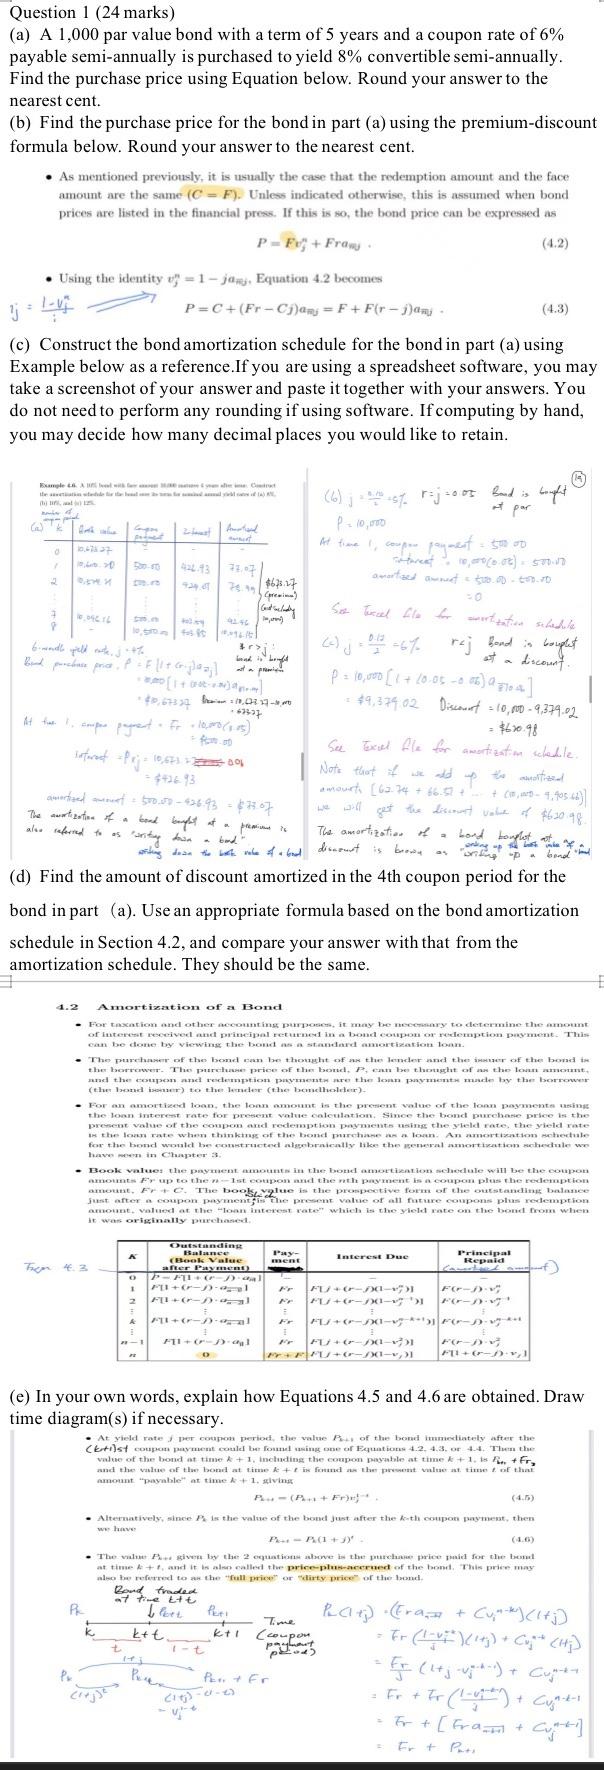 Question 1 (24 marks)
(a) A 1,000 par value bond with a term of 5 years and a coupon rate of 6%
payable semi-annually is purchased to yield 8% convertible semi-annually.
Find the purchase price using Equation below. Round your answer to the
nearest cent.
(b) Find the purchase price for the bond in part (a) using the premium-discount
formula below. Round your answer to the nearest cent.
• As mentioned previously, it is usually the case that the redemption amount and the face
amount are the same (C = F). Unless indicated otherwise, this is assumed when bond
prices are listed in the financial press. If this is so, the bond price can be expressed as
P = Fv_j^n + Fra_{n|j} . (4.2)
• Using the identity v_j^n = 1 − ja_{n|j}, Equation 4.2 becomes
P = C + (Fr − Cj)a_{n|j} = F + F(r − j)a_{n|j} . (4.3)
(c) Construct the bond amortization schedule for the bond in part (a) using
Example below as a reference.If you are using a spreadsheet software, you may
take a screenshot of your answer and paste it together with your answers. You
do not need to perform any rounding if using software. If computing by hand,
you may decide how many decimal places you would like to retain.
Example 4.6. A 10% bond with face amount 10,000 matures 4 years after issue. Construct
the amortization schedule for the bond over its term for nominal annual yield rates of (a) 8%,
(b) 10%, and (c) 12%.
(a) k Book value Coupon payment Interest Amortized amount
0 10,673.27 - - -
1 500.00 426.93 73.07
2 500.00
7 10,096.16 500.00
8 10,500.00
6-month yield rate, j = 4%
At time 1, coupon payment = Fr = 10,000(0.05)
= $500.00
= $426.93
amortized amount = 500.00 - 426.93 = $73.07
The amortization of a bond bought at a premium is
also referred to as "writing down a bond"
writing down the book value of a bond
(b) j = 0.10/2 = 5% r = j = 0.05 Bond is bought
at par
P = 10,000
At time 1, coupon payment = 500.00
Interest = 10,000(0.05) = 500.00
amortized amount = 500.00 - 500.00
= 0
See Excel file for amortization schedule
(c) j = 0.12/2 = 6% r<j Bond is bought
at a discount.
P = 10,000[1 + (0.05 - 0.06)a_{8|0.06}]
= $9,379.02 Discount = 10,000 - 9,379.02
= $620.98
See Excel file for amortization schedule.
Note that if we add up the amortized
amounts [62.74 + 66.51 + ... + (10,000 - 9,905.66)]
we will get the discount value of $620.98.
The amortization of a bond bought at a
discount is known as "writing up a bond"
(d) Find the amount of discount amortized in the 4th coupon period for the
bond in part （a). Use an appropriate formula based on the bond amortization
schedule in Section 4.2, and compare your answer with that from the
amortization schedule. They should be the same.
4.2 Amortization of a Bond
• For taxation and other accounting purposes, it may be necessary to determine the amount
of interest received and principal returned in a bond coupon or redemption payment. This
can be done by viewing the bond as a standard amortization loan.
• The purchaser of the bond can be thought of as the lender and the issuer of the bond is
the borrower. The purchase price of the bond, P, can be thought of as the loan amount,
and the coupon and redemption payments are the loan payments made by the borrower
(the bond issuer) to the lender (the bondholder).
• For an amortized loan, the loan amount is the present value of the loan payments using
the loan interest rate for present value calculation. Since the bond purchase price is the
present value of the coupon and redemption payments using the yield rate, the yield rate
is the loan rate when thinking of the bond purchase as a loan. An amortization schedule
for the bond would be constructed algebraically like the general amortization schedule we
have seen in Chapter 3.
• Book value: the payment amounts in the bond amortization schedule will be the coupon
amounts Fr up to the n − 1st coupon and the nth payment is a coupon plus the redemption
amount, Fr + C. The book value is the prospective form of the outstanding balance
just after a coupon payment, is the present value of all future coupons plus redemption
amount, valued at the "loan interest rate" which is the yield rate on the bond from when
it was originally purchased.
From 4.3
K Outstanding Balance (Book Value after Payment) Payment Interest Due Principal Repaid (amortized amount)
0 P=F[1+(r−j)·a_n] − − −
1 F[1+(r−j)·a_{n−1}] Fr F[j+(r−j)(1−v_j^n)] F(r−j)·v_j^n
2 F[1+(r−j)·a_{n−2}] Fr F[j+(r−j)(1−v_j^{n−1})] F(r−j)·v_j^{n−1}
k F[1+(r−j)·a_{n−k}] Fr F[j+(r−j)(1−v_j^{n−k+1})] F(r−j)·v_j^{n−k+1}
n−1 F[1+(r−j)·a_1] Fr F[j+(r−j)(1−v_j^2)] F(r−j)·v_j^2
n 0 Fr+F F[j+(r−j)(1−v_j)] F[1+(r−j)·v_j]
(e) In your own words, explain how Equations 4.5 and 4.6 are obtained. Draw
time diagram(s) if necessary.
• At yield rate j per coupon period, the value P_{k+1} of the bond immediately after the
(k+1)st coupon payment could be found using one of Equations 4.2, 4.3, or 4.4. Then the
value of the bond at time k + 1, including the coupon payable at time k + 1, is P_{k+1} + Fr,
and the value of the bond at time k + t is found as the present value at time t of that
amount "payable" at time k + 1, giving
P_{k+t} = (P_{k+1} + Fr)v_j^{1−t} . (4.5)
• Alternatively, since P_k is the value of the bond just after the k-th coupon payment, then
we have
P_{k+t} = P_k(1 + j)^t . (4.6)
• The value P_{k+t} given by the 2 equations above is the purchase price paid for the bond
at time k + t, and it is also called the price-plus-accrued of the bond. This price may
also be referred to as the "full price" or "dirty price" of the bond.
Bond traded
at time k+t
P_k P_{k+t} P_{k+1} Time
k k+t k+1 (coupon
payment
period)
t 1-t
1+j
P_k P_{k+t} P_{k+1} + Fr
(1+j)^t (1+j)^{-(1-t)}
= v_j^{1-t}
P_k(1+j) = (Fra_{n-k} + Cv_j^{n-k})(1+j)
= Fr((1-v_j^{n-k})/j)(1+j) + Cv_j^{n-k}(1+j)
= Fr/j (1+j-v_j^{n-k-1}) + Cv_j^{n-k-1}
= Fr + Fr((1-v_j^{n-k-1})/j) + Cv_j^{n-k-1}
= Fr + [Fra_{n-k-1} + Cv_j^{n-k-1}]
= Fr + P_{k+1}